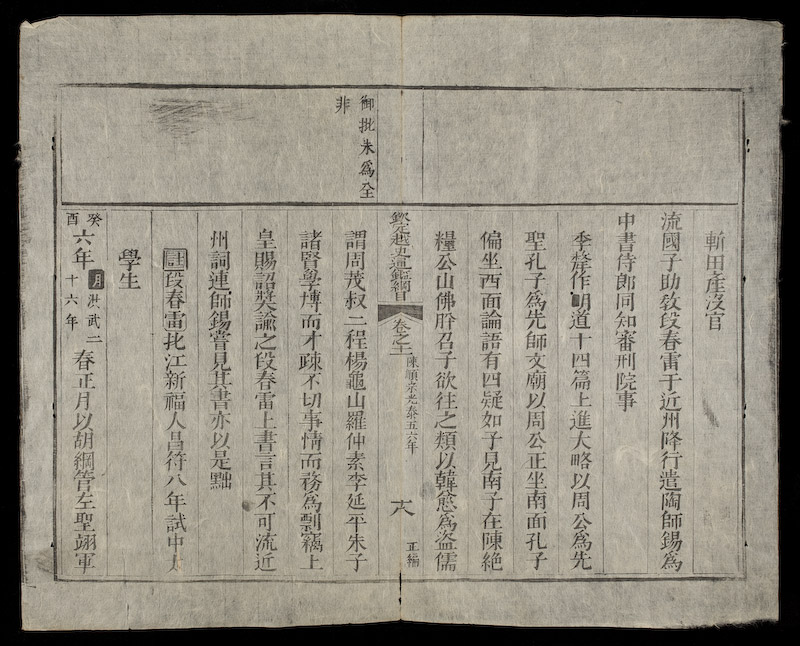 斬田産没官
流國子助敎段春雷于近州降行遣陶師錫爲
中書侍郎同知審刑院事
季犛作明道十四篇上進大略以周公爲先
聖孔子爲先師文廟以周公正坐南面孔子
偏坐西面論語有四疑如子見南子在陳絶
糧公山佛肸召子欲往之類以韓愈爲盗儒
欽定越史通鑑綱目 卷之十一 陳順宗光泰五六年 十八 正編
御批朱爲全
非
謂周茂叔二程楊龜山羅仲素李延平朱子
諸賢學博而才疎不切事情而務爲剽竊上
皇賜詔奬諭之段春雷上書言其不可流近
州詞連師錫嘗見其書亦以是黜
註段春雷扡江新福人昌符八年試中太
學生
癸酉六年明洪武二十六年春正月以胡綱管左聖翊軍